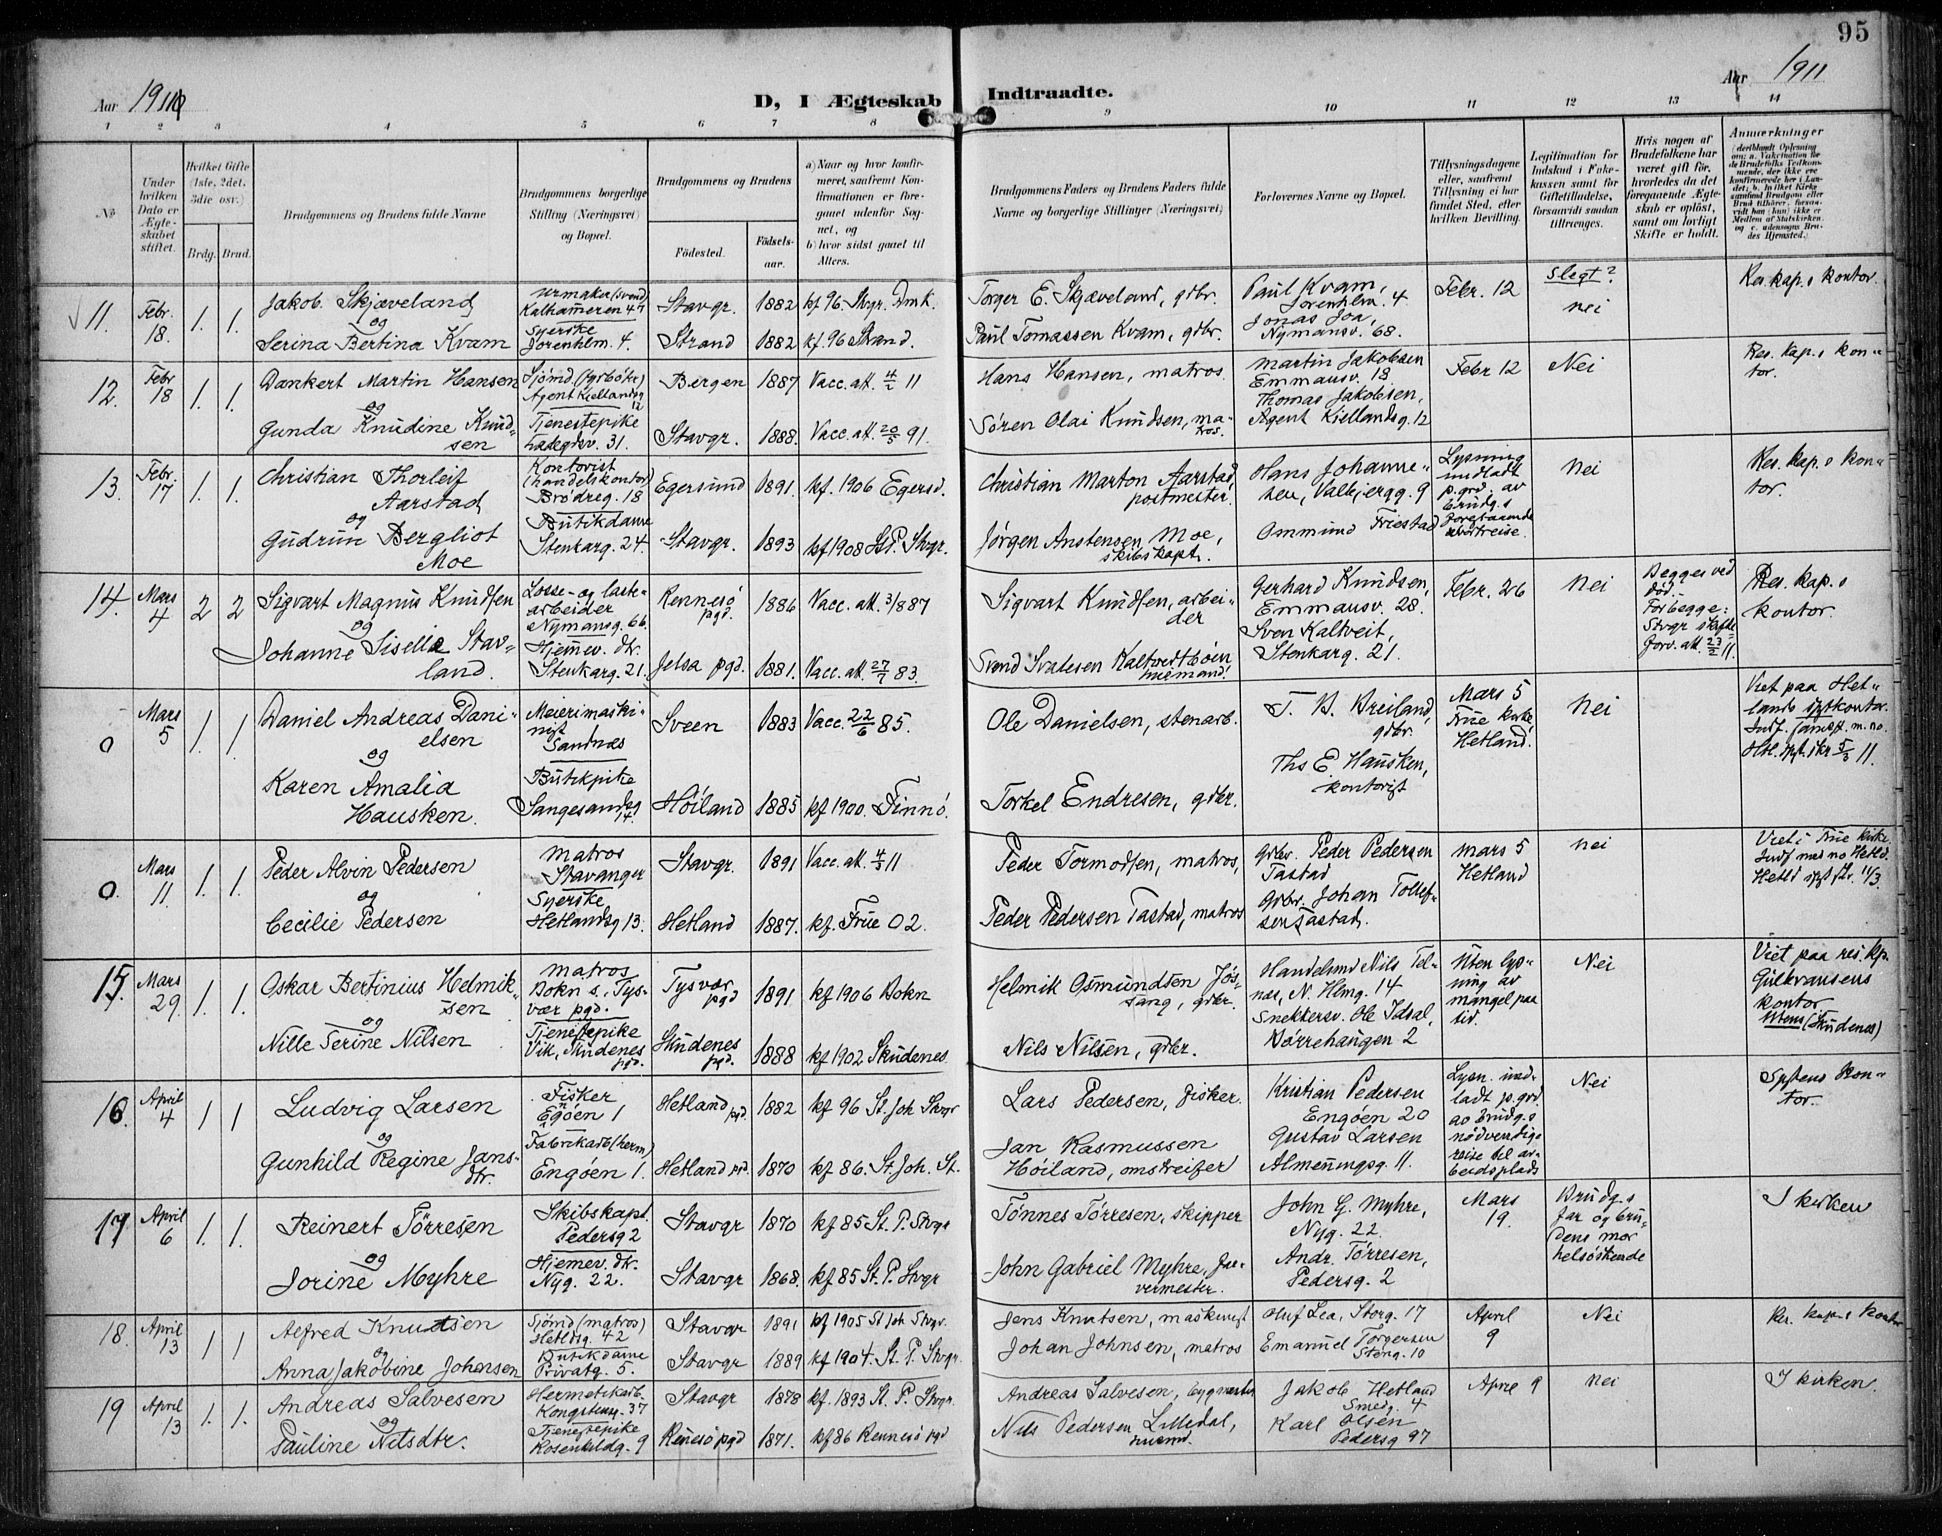 95
Aar 1911
Aar 1911
D, I Ægteskab Indtraadte.
1 2 3 4 5 6 7 8 9 10 11 12 13 14
No
Under hvilken Dato er Ægteskabet stiftet.
Hvilket Gifte (1ste, 2det, 3die osv.)
Brdg. Brud.
Brudgommens og Brudens fulde Navne
Brudgommens borgerlige Stilling (Næringsvei) og Bopæl.
Brudgommens og Brudens
Födested. Födsels-aar.
a) Naar og hvor konfirmeret, saafremt Konfirmationen er foregaaet udenfor Sognet, og
b) hvor sidst gaaet til Alters.
Brudgommens Faders og Brudens Faders fulde Navne og borgerlige Stillinger (Næringsvei)
Forlovernes Navne og Bopæl.
Tillysningsdagene eller, saafremt Tillysning ei har fundet Sted, efter hvilken Bevilling.
Legitimation for Indskud i Enkekassen samt for Giftetilladelse, forsaavidt saadan tiltrænges.
Hvis nogen af Brudefolkene har været gift för, hvorledes da det foregaaende Ægteskab er oplöst, samt om lovligt Skifte er holdt.
Anmærkninger (deriblandt Oplysning om: a. Vakcination for de Brudefolks Vedkommende, der ikke ere konfirmerede her i Landet; b. hvilket Kirkesamfund Brudgom eller Brud tilhörer, forsaavidt han (hun) ikke er Medlem af Statskirken, og c. udensogns Brudes Hjemsted.)
11. Febr. 18. 1. 1.
Jakob Skjæveland
og
Serina Bertina Kvam
Urmaker(svend) Kalhammeren 47
Syerske Jorenholm. 4.
Stavgr. 1882 kf 96. Stvgr. Dmk.
Strand 1882 kf. 96 Strand.
Torger E. Skjæveland, gbr.
Paul Tomassen Kvam, gbr.
Paul Kvam, Jorenholm. 4
Jonas Joa, Nymansv. 68.
Febr. 12
Slegt? nei
Res. kap.s kontor.
12. Febr 18 1. 1.
Dankert Martin Hansen
og
Gunda Knudine Knudsen
Sjömd. (fyrböter) Agent Kiellandsg 12
Tjenestepike 31.
Bergen 1887 Vacc. att. 4/2 11
Stavgr. 1888. Vacc. att. 20/5 91.
Hans Hansen, matros.
Sören Olai Knudsen, matros.
Martin Jakobsen Emmausv. 18
Thomas Jakobsen, Agent Kiellandsg. 12
Febr 12
Nei
Res. kap.s kontor.
13. Febr. 17 1. 1.
Christian Thorleif Aarstad
og
Gudrun Bergliot Moe
Kontorist (handelskontor) Brödreg. 18
Butikdame Stenkarg. 24
Egersund 1891. kf. 1906 Egersd.
Stavgr. 1893 kf 1908 St P. Stvgr.
Christian Marton Aarstad, postmester.
Jørgen Anstensen Moe, skibskapt.
Hans Johannesen, Valbjergg. 9
Ommund Friestad
Lysning undladt p.grd. av brudg.s foregaaende
nei
Res. kap.s kontor.
14. Mars 4 2 2
Sigvart Magnus Knudsen
og
Johanne Siselle Stavland.
Losse- og lastearbeider Nymansg. 66.
Hjemmev. dtr. Stenkarg. 21.
Rennesö pgd. 1886 Vacc. att. 3/1 887
Jelsa pgd. 1881. Vacc. att. 27/7 83.
Sigvart Knudsen, arbeider
Svend Svalesen Kaltvedt
Gerhard Knudsen, Emmausv. 28.
Sven Kaltveit, Stenkarg. 21.
Febr. 26
nei
Begges ved död. For begge: Stvgr skifteforv. att. 23/2 11.
Res. kap.s kontor.
0 Mars 5 1. 1
Daniel Andreas Danielsen
og
Karen Amalia Hausken.
Meierimaskinist Sandnæs
Butikpike Langesandsg 14.
Sveen 1883 Vacc. 22/6 85.
Höiland 1885 kf 1900. Finnö.
Ole Danielsen, stenarb.
Torkel Endresen, gbr.
T. B. Breiland, gbr.
Ths E. Hausken, kontorist
Mars 5 Frue kirke, Hetland.
nei
Viet paa Hetlands sptkontor. Indf. m. no. Htl. 5/3 11.
0. Mars 11. 1. 1.
Peder Alvin Pedersen
og
Cecilie Pedersen
Matros Stavanger
Syerske, Hetlandsg 13.
Stavgr. 1891 Vacc. att. 4/3 11
Hetland 1887. kf. Frue 02.
Peder Tormodsen, matros,
Peder Pedersen Tastad, matros
Gbr. Peder Pedersen Tastad
Gbr. Johan Tollefsen Tastad.
Mars 5 Hetland
nei
Viet i Frue kirke Indf med no Hetld. 11/3.
15. Mars 29. 1. 1.
Oskar Bertinius Helmiksen
og
Nille Serine Nilsen
Matros Bokn s., Tysvær pgd.
Tjenestepike Vik, Skudenes pgd.
Tysvær pgd 1891 kf 1906 Bokn
Skudenes pgd. 1888 kf 1902 Skudenes
Helmik Osmundsen Jøssang, gbr.
Nils Nilsen, gbr.
Handelsmd Nils Telnes, N. Hlmg. 14
Snekkersv. Ole Idsal, Börrehaugen 2
Uten lysning av mangel paa tid.
Nei
Viet paa res. kp. Gulbransens kontor. Utens (Skudenes)
16. April 4 1 1
Ludvig Larsen
og
Gunhild Regine Jansdtr.
Fisker Engöen 1
Fabrikarb (herm) Engöen 1.
Hetland pgd. 1882 kf 96 St. Joh Stvgr
Hetland pgd. 1870 kf 86. St. Joh. St.
Lars Pedersen, fisker.
Jan Rasmussen Höiland, omstreifer
Kristian Pedersen Engöen 20
Gustav Larsen Almenningsg. 11.
Lysn. undladt p. grd av brudg.s nödvendige reise til arbeidsplads
Nei
Sptens Kontor.
17 April 6 1. 1.
Reinert Törresen
og
Jorine Myhre
Skibskapt. Pedersg 2
Hjemev. dtr. Nyg. 22.
Stavgr 1870 kf 85 St. P. Stvgr
Stavgr 1868. kf 85 St. P. Stvgr
Tönnes Törresen, skipper
John Gabriel Myhre, farvermester.
John G. Myhre, Nyg. 22.
Andr. Törresen, Pedersg. 2
Mars 19.
Brudg.s far og brudens mor helsöskende
I kirken
18. April 13 1 1
Alfred Knudsen
og
Anna Jakobine Johnsen
Sjömd (matros) Hetldsg. 42
Butikdame Privatg. 5.
Stavgr 1891 kf 1905 St Joh Stvgr.
Stavgr 1889 kf 1904. St. P. Stvgr.
Jens Knutsen, maskinist
Johan Johnsen, matros
Oluf Lea, Storg. 17
Emanuel Torgersen Steng. 10
April 9
Nei
Res. kap.s kontor
19 April 13 1. 1.
Andreas Salvesen
og
Pauline Nilsdtr.
Hermetikarb. Kongstensg. 37
Tjenestepike Rosenkildg. 9
Stavgr 1878 kf. 1893 St. P. Stvgr.
Rennesö pgd 1871. kf 86 Rennesö pgd
Andreas Salvesen, bygmester
Nils Pedersen Lilledal, husmd.
Jakob Hetland Smedg. 4
Karl Olsen Pedersg 97
April 9
nei
I kirken.